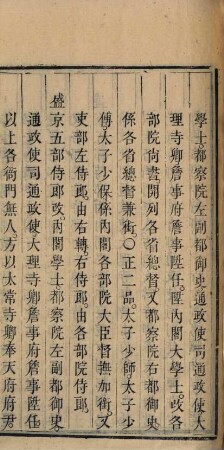 學士都察院左副都御史通政使司通政使大
理寺卿詹事府詹事陞任。陞內閣大學士。改各
部院尙書。開列各省總督。又都察院右都御史
係各省總督兼銜○正二品。太子少師太子少
傅太子少保。係內閣各部院大臣督撫加銜。又
吏部左侍郎。由右轉。右侍郎。由各部院侍郎
盛京五部侍郎改。內閣學士都察院左副都御史
通政使司通政使大理寺卿詹事府詹事陞任
以上各衙門無人。方以太常寺卿奉天府府